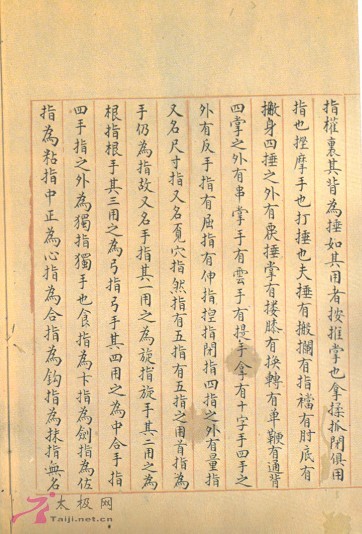 指權裏其背為捶如其用者按推掌也拿揉抓閉俱用
指也挫摩手也打捶也夫捶有搬攔有指襠有肘底有
撇身四捶之外有覆捶掌有摟膝有換轉有單鞭有通背
四掌之外有串掌手有雲手有提手拿有十字手四手之
外有反手指有屈指有伸指捏指閉指四指之外有量指
又名尺寸指又名覓穴指然指有五指有五指之用首指為
手仍為指故又名手指其一用之為旋指旋手其二用之為
根指根手其三用之為弓指弓手其四用之為中合手指
四手指之外為獨指獨手也食指為卞指為劍指為佐
指為粘指中正為心指為合指為鈎指為抹指無名
太极网
Taiji.net.cn